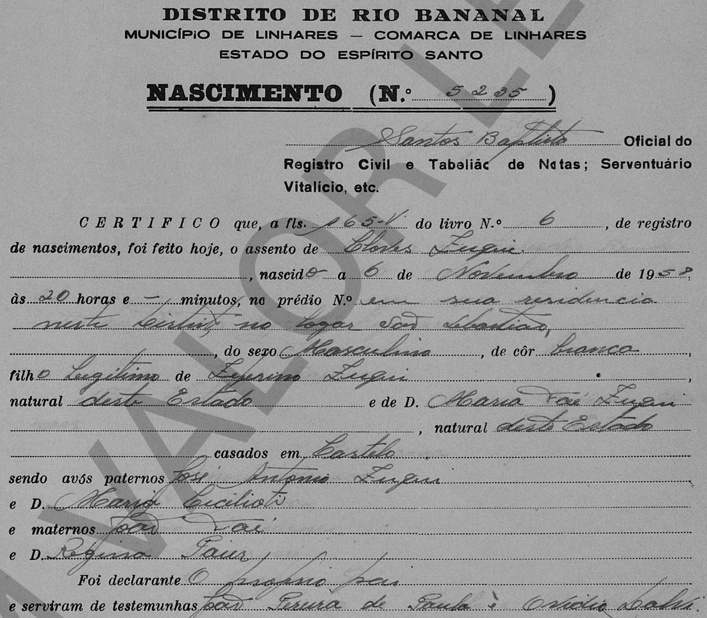 DISTRITO DE RIO BANANAL
MUNICÍPIO DE LINHARES — COMARCA DE LINHARES
ESTADO DO ESPÍRITO SANTO
NASCIMENTO (N.º 5235)
Santos Baptista Oficial do
Registro Civil e Tabelião de Notas; Serventuário
Vitalício, etc.
CERTIFICO que, a fls. 165-V. do livro N.º 6, de registro
de nascimentos, foi feito hoje, o assento de Clovis Zuqui
, nascido a 6 de Novembro de 1958,
às 20 horas e — minutos, no prédio N.º em sua residencia
neste no logar São Sebastião,
, do sexo Masculino, de côr branca,
filho Legitimo de Zeferino Zuqui,
natural deste Estado e de D. Maria Zuqui
, natural deste Estado
casados em Castelo.
sendo avós paternos José Antonio Zuqui
e D. Maria
e maternos
e D. Regina
Foi declarante O proprio pai
e serviram de testemunhas Pereira de Paula e Ovidio
VALOR LE